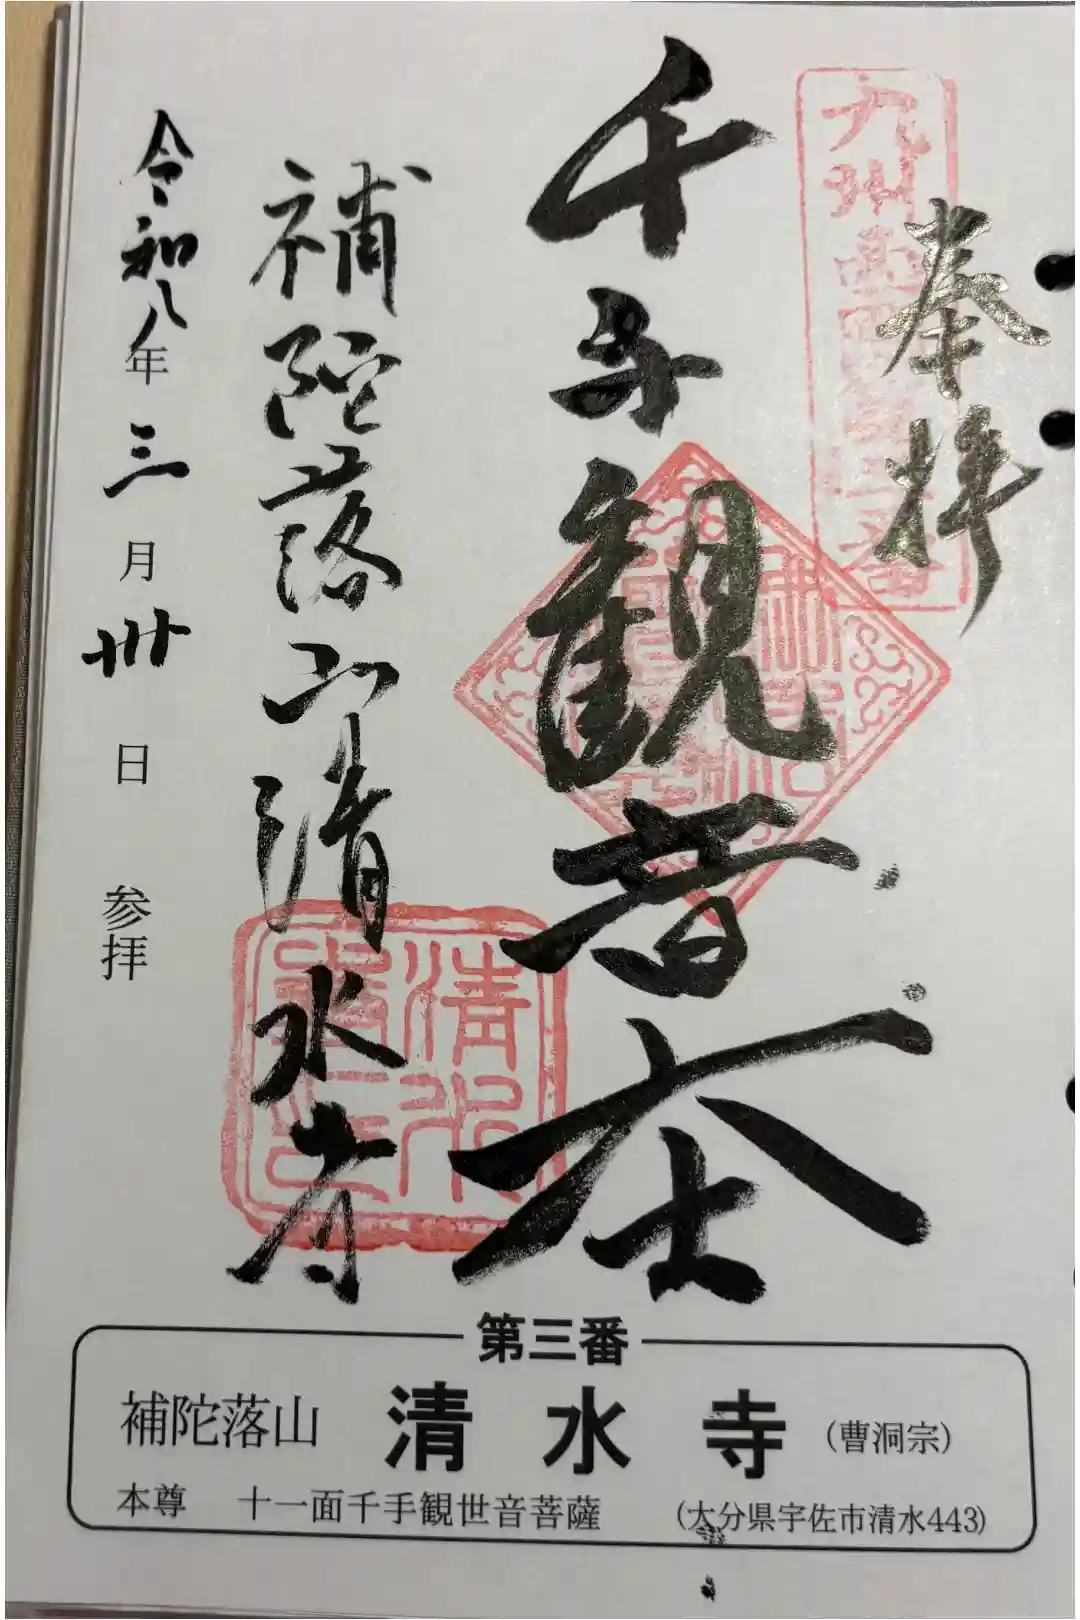 奉拝
九州西国
千手観音大士
補陀落山清水寺
清水
令和八年三月卅日 参拝
第三番
補陀落山 清水寺 (曹洞宗)
本尊 十一面千手観世音菩薩 (大分県宇佐市清水443)